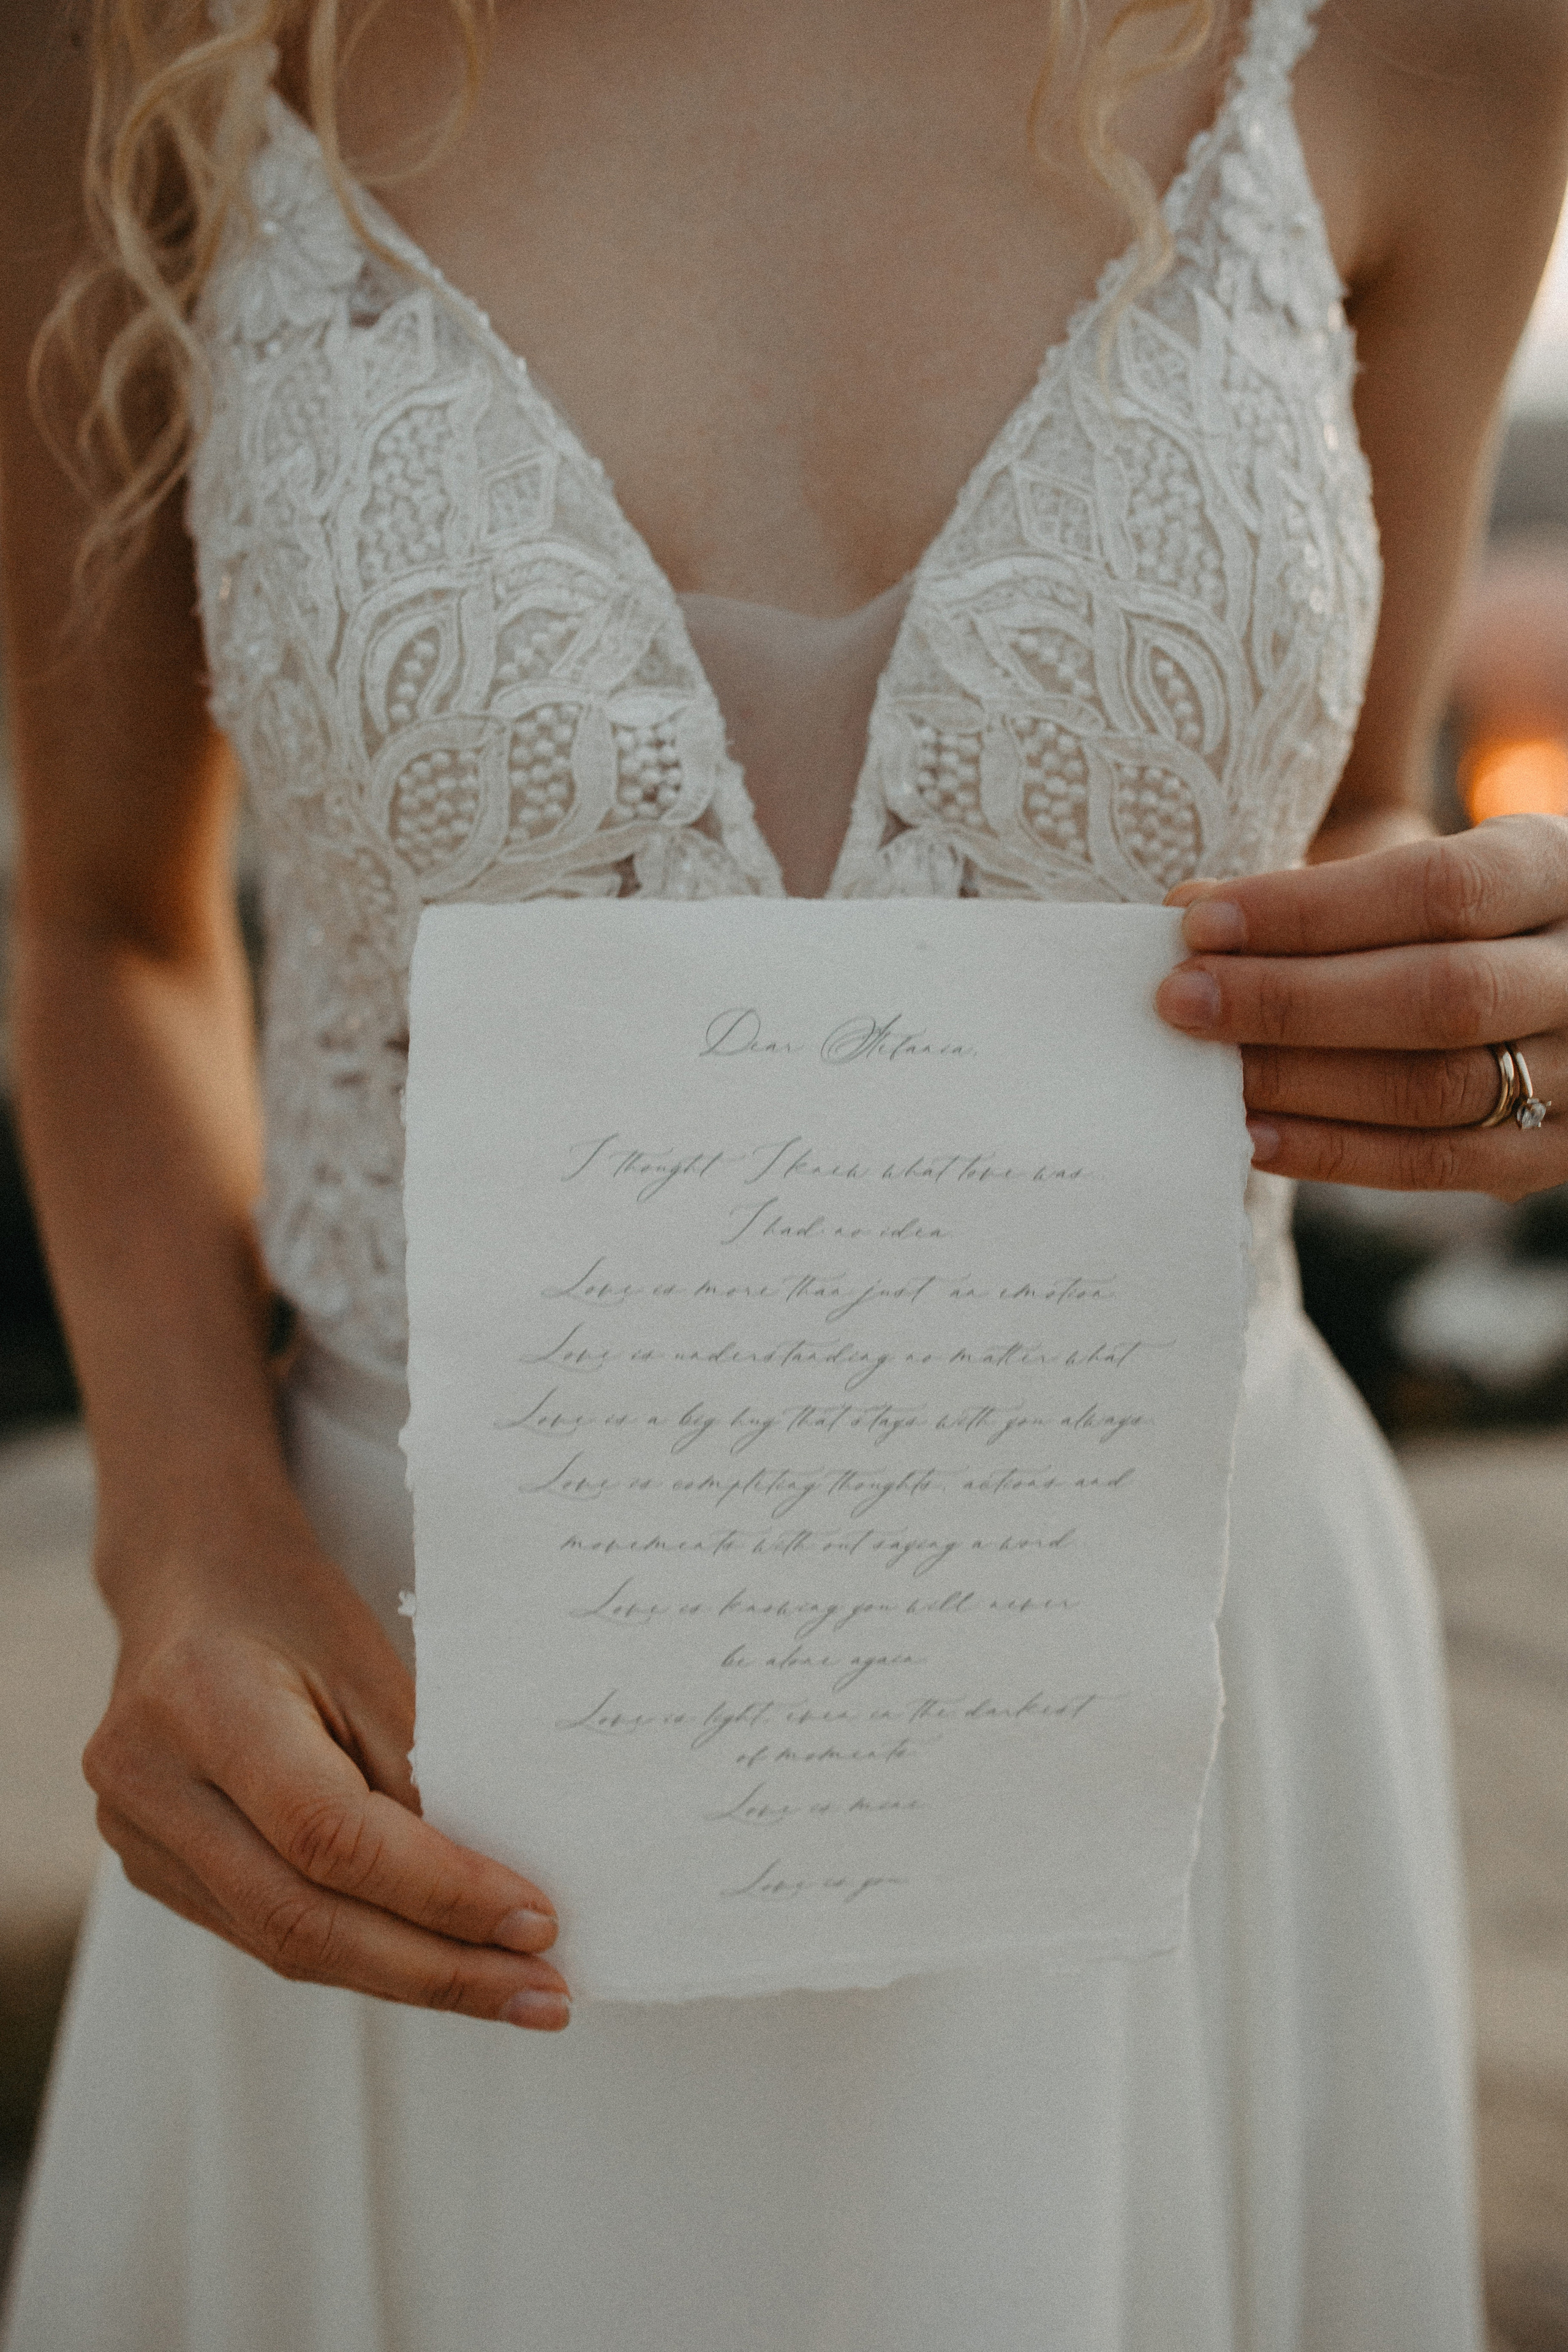 Dear Stefania,
I thought I knew what love was.
I had no idea.
Love is more than just an emotion.
Love is understanding no matter what.
Love is a big hug that stays with you always.
Love is completing thoughts, actions and
movements with out saying a word.
Love is knowing you will never
be alone again.
Love is light, even in the darkest
of moments.
Love is mine.
Love is you.